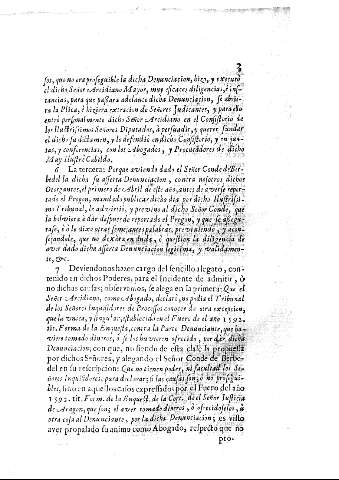 3
sos, que no era proseguible la dicha Denunciacion, hizo, y executò
el dicho Señor Arcidiano Mayor, muy eficaces diligencias, è ins-
tancias, para que passara adelante dicha Denunciacion, se
ra la Plica, è hiziera extraccion de Señores Judicantes, y para ello
entrò personalmente dicho Señor Arcidiano en el Consistorio de
los Ilustrissimos Señores Diputados, à persuadir, y querer fundar
el dicho su dictamen, y lo defendiò en dichos Consistorio, y en jun-
tas, y conferencias, con los Abogados, y Procuradores de dicho
Muy Ilustre Cabildo.
6 La tercera: Porque aviendo dado el Señor Conde de Ber-
bedel la dicha su asserta Denunciacion, contra nosotros dichos
el primero de Abril de este año, antes de averse repor-
tado el Pregon, mandado publicar dicho dia por dicho Ilustrissi-
mo Tribunal, le advirtiò, y previno al dicho Señor Conde, que
la bolviera à dar despues de reportado el Pregon, y que se
, ò le dixo otras semejantes palabras, previniendo, y acon-
sejandole, que no dexàra en duda, ò question la diligencia de
aver dado dicha asserta Denunciacion legitima, y validamen-
te, &c.
7 Deviendonos hazer cargo del sencillo alegato, con-
tenido en dichos Poderes, para el incidente de admitir, ò
no dichas cosas; observamos, se alega en la primera: Que el
Señor Arcidiano, como Abogado, declarò, no podia el Tribunal
de los Señores Inquisidores de Processos conocer de otra excepcion,
que la unica, y singular, establecida en el Fuero de el año 1592.
tit. Forma de la Enquesta, contra la Parte Denunciante, que ha-
viere tomado dineros, ò se les huvieren ofrecido, por dar dicha
Denunciacion; con que, no siendo de esta clase la propuesta
por dichos Señores, y alegando el Señor Conde de Berbe-
del en su rescripcion: Que no tienen poder, ni facultad los Se-
ñores Inquisidores, para declarar, si las causas son, ò no prosegui-
bles, fuera de los casos expressados por el Fuero del año
1592. tit. Form. de la Enquest. de la Cort. de el Señor Justicia
de Aragon, que son, el aver tomado dineros, ò ofrecidoselos, ò
otra cosa al Denunciante, por la dicha Denunciacion; es visto
aver propalado su animo como Abogado, respecto que no
pro-